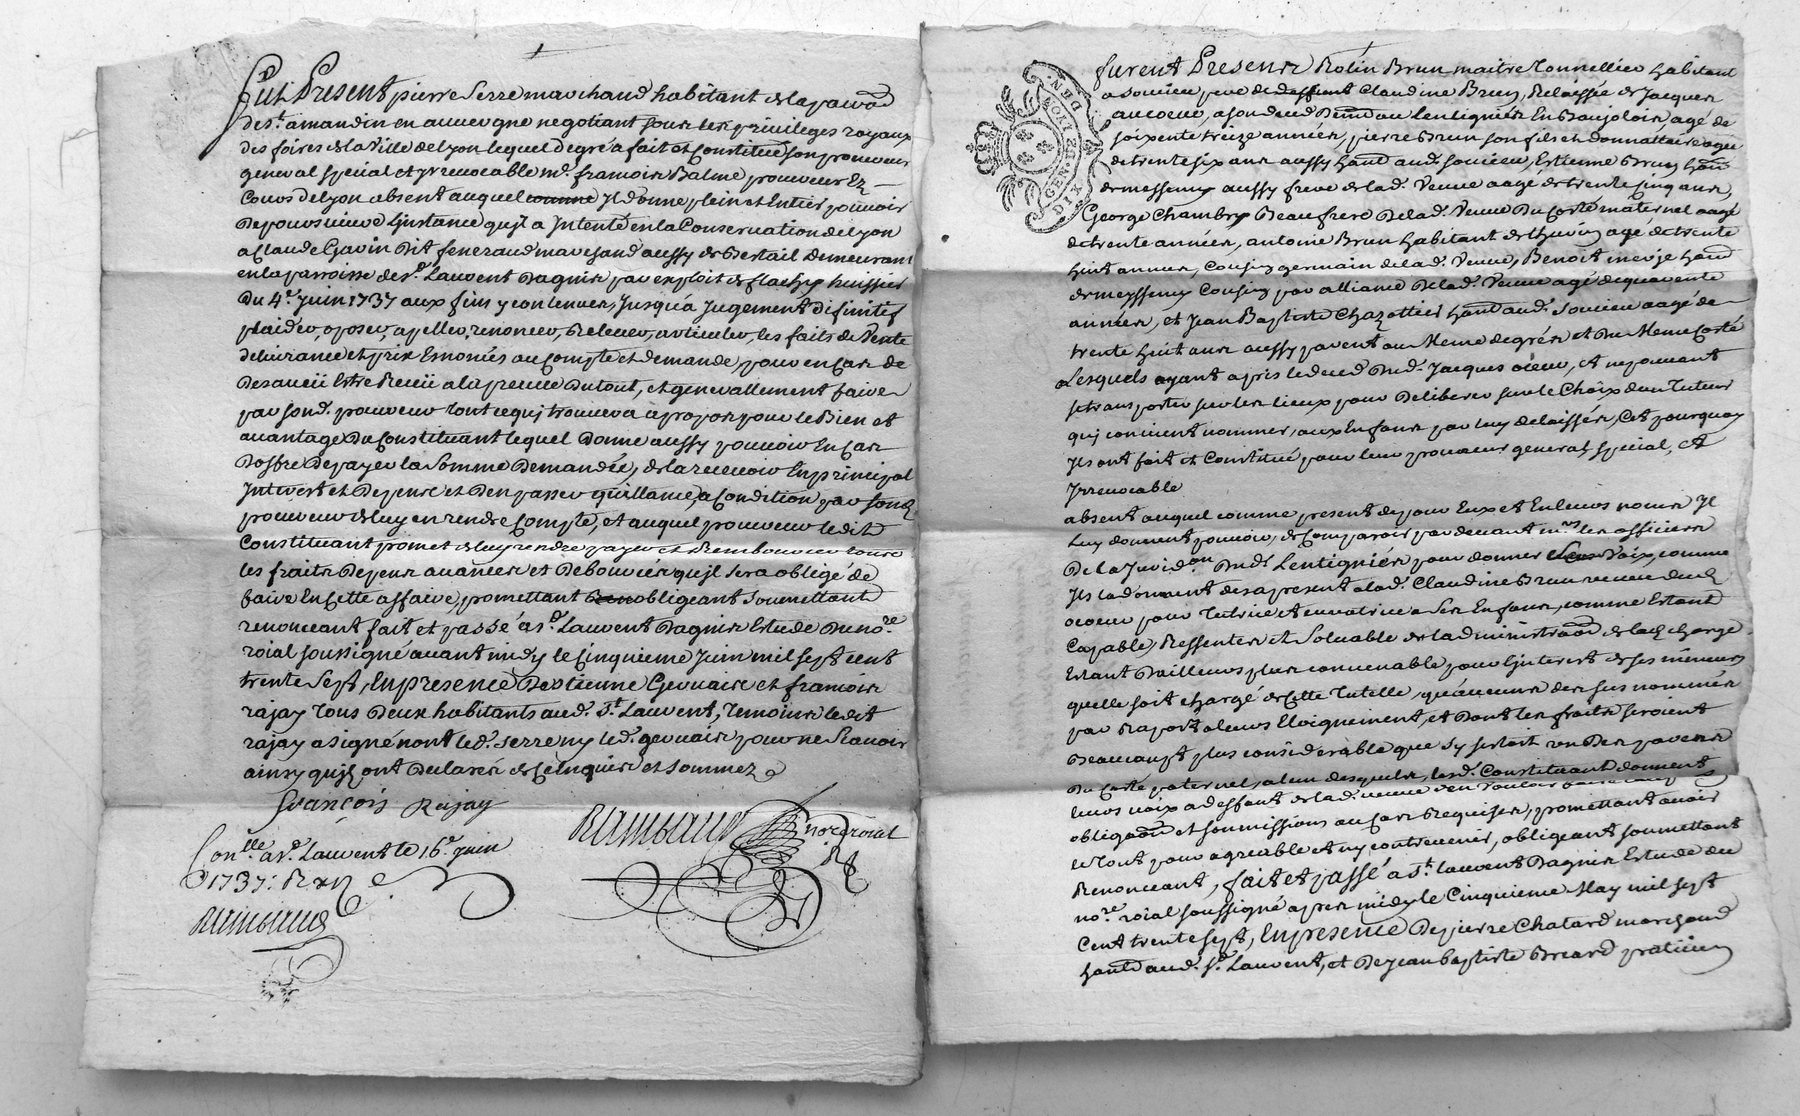 Fut Present pierre Serre marchand habitant de la paroisse
de St. amandin en auvergne negotiant sous les privileges royaux
des foires de la Ville de Lyon lequel degré a fait et Constitué son procureur
general special et yrrevocable me. françois Balme procureur Ez
Cours de Lyon absent auquel comme Jl donne plein et Entier pouvoir
De poursuivre Linstance qu'jl a Jntenté en la Conservation de Lyon
a Claude Gavin Dit feneraud marchand aussy de Bestail Demeurant
en la parroisse de St. Laurent Dagnis par exploit de flachy huissier
Du 4e. Juin 1737 aux fins y contenues, Jusqu'a Jugement Difinitif
plaider, oposer, apeller, renoncer, Relever, articuler, les faits de Vente
delivrance et prix Enoncés au Compte et demande, pour en Cas de
Desaveü Estre Receü a la preuve Du tout, et generallement faire
par sond. procureur tout ce qu'j trouvera a propos pour le Bien et
avantage Du Constituant lequel Donne aussy pouvoir En Cas
Doffre De payer la Somme Demandée, de la recevoir En principal
Jnterest et Depens et Den passer quittance, a Condition par sond.
procureur de luy en rendre Compte, et auquel procureur ledit
Constituant promet de luy rendre payer et Rembourcer tous
les fraits Depens avances et Deboursés qu'jl sera obligé de
faire En Cette affaire, promettant obligeant Soumettant
renonceant fait et passé a St. Laurent Dagnis Estude Du nore.
roial soussigné avant midy le Cinquieme Juin mil sept cent
trente Sept, En presence D'estienne Gervais et françois
rajay tous Deux habitants aud. St. Laurent, temoins ledit
rajay a signé non led. serre ny led. gervais pour ne sçavoir
ainsy qu'jls ont Declaré de Ce Enquis et Sommez
françois Rajay
Rambaud nore. roial
Conlle. a St. Laurent le 16e. juin
1737.
Rambaud
furent Presents Rolin Brun maitre tonnellier habitant
a Soucieu pere de deffunt Claudine Brun, Relaissée de Jacques
agé de
soixente treize années, pierre Brun son fils et donnattaire agé
de trente six ans aussy hant. aud. Soucieu, Estienne Brun hant.
de messemy aussy frere de lad. Veuve agé de trente Cinq ans,
George Chambry Beaufrere De lad. Veuve Du Costé maternel agé
de trente années, antoine Brun habitant de thurin agé de trente
huit années, Cousin germain de lad. Veuve, Benoit hant.
de meyssemy Cousin par alliance De lad. Veuve agé de quarente
années, et Jean Baptiste Chazottier hant. aud. Soucieu agé de
trente huit ans aussy parent au Meme degrés et Du Meme Costé
Lesquels ayant apris le deced Dud. Jacques et ne pouvant
se transporter sur les lieux pour Deliberer sur le Choix d'un Tuteur
qu'j convient nommer, aux Enfans par luy delaissés, C'est pourquoy
Jls ont fait et Constitué pour leur procureur general, special, et
Yrrevocable
absent auquel comme present de pour Eux et En leurs noms Jl
luy donnent pouvoir, de Comparoir par devant mrs. les officiers
De la Juridon. Dud. Lentignié, pour donner Leurs Voix, comme
Jls la donnent des apresent a lad. Claudine Brun veuve dud.
pour tutrice et curatrice a Ses Enfans, comme Estant
Capable, Ressente et Soluable de ladministraon. de lad. charge
Estant D'ailleurs plus convenable pour L'jnterest de ses mineurs
quelle soit chargé de Cette tutelle, qu'aucuns des sus nommés
par Raport a leurs Eloignement, et Dont les fraits seroient
Beaucoupt plus considerable que s'y sestoit un Des parens
Du Costé paternel, a lun desquels, lesd. Constituant donnent
leurs voix a deffaut de lad. veuve
obligaon. et soumissions au Cas Requises, promettant avoir
le tout pour agreable et ny contrevenir, obligeant soumettant
Renonceant, fait et passé a St. Laurent Dagnis Estude du
nore. roial soussigné apres midy le Cinquieme May mil sept
Cent trente sept, En presence De pierre Chatard marchand
hant. aud. St. Laurent, et De jean baptiste Breard praticien
DIX DEN.
GEN. DE LION